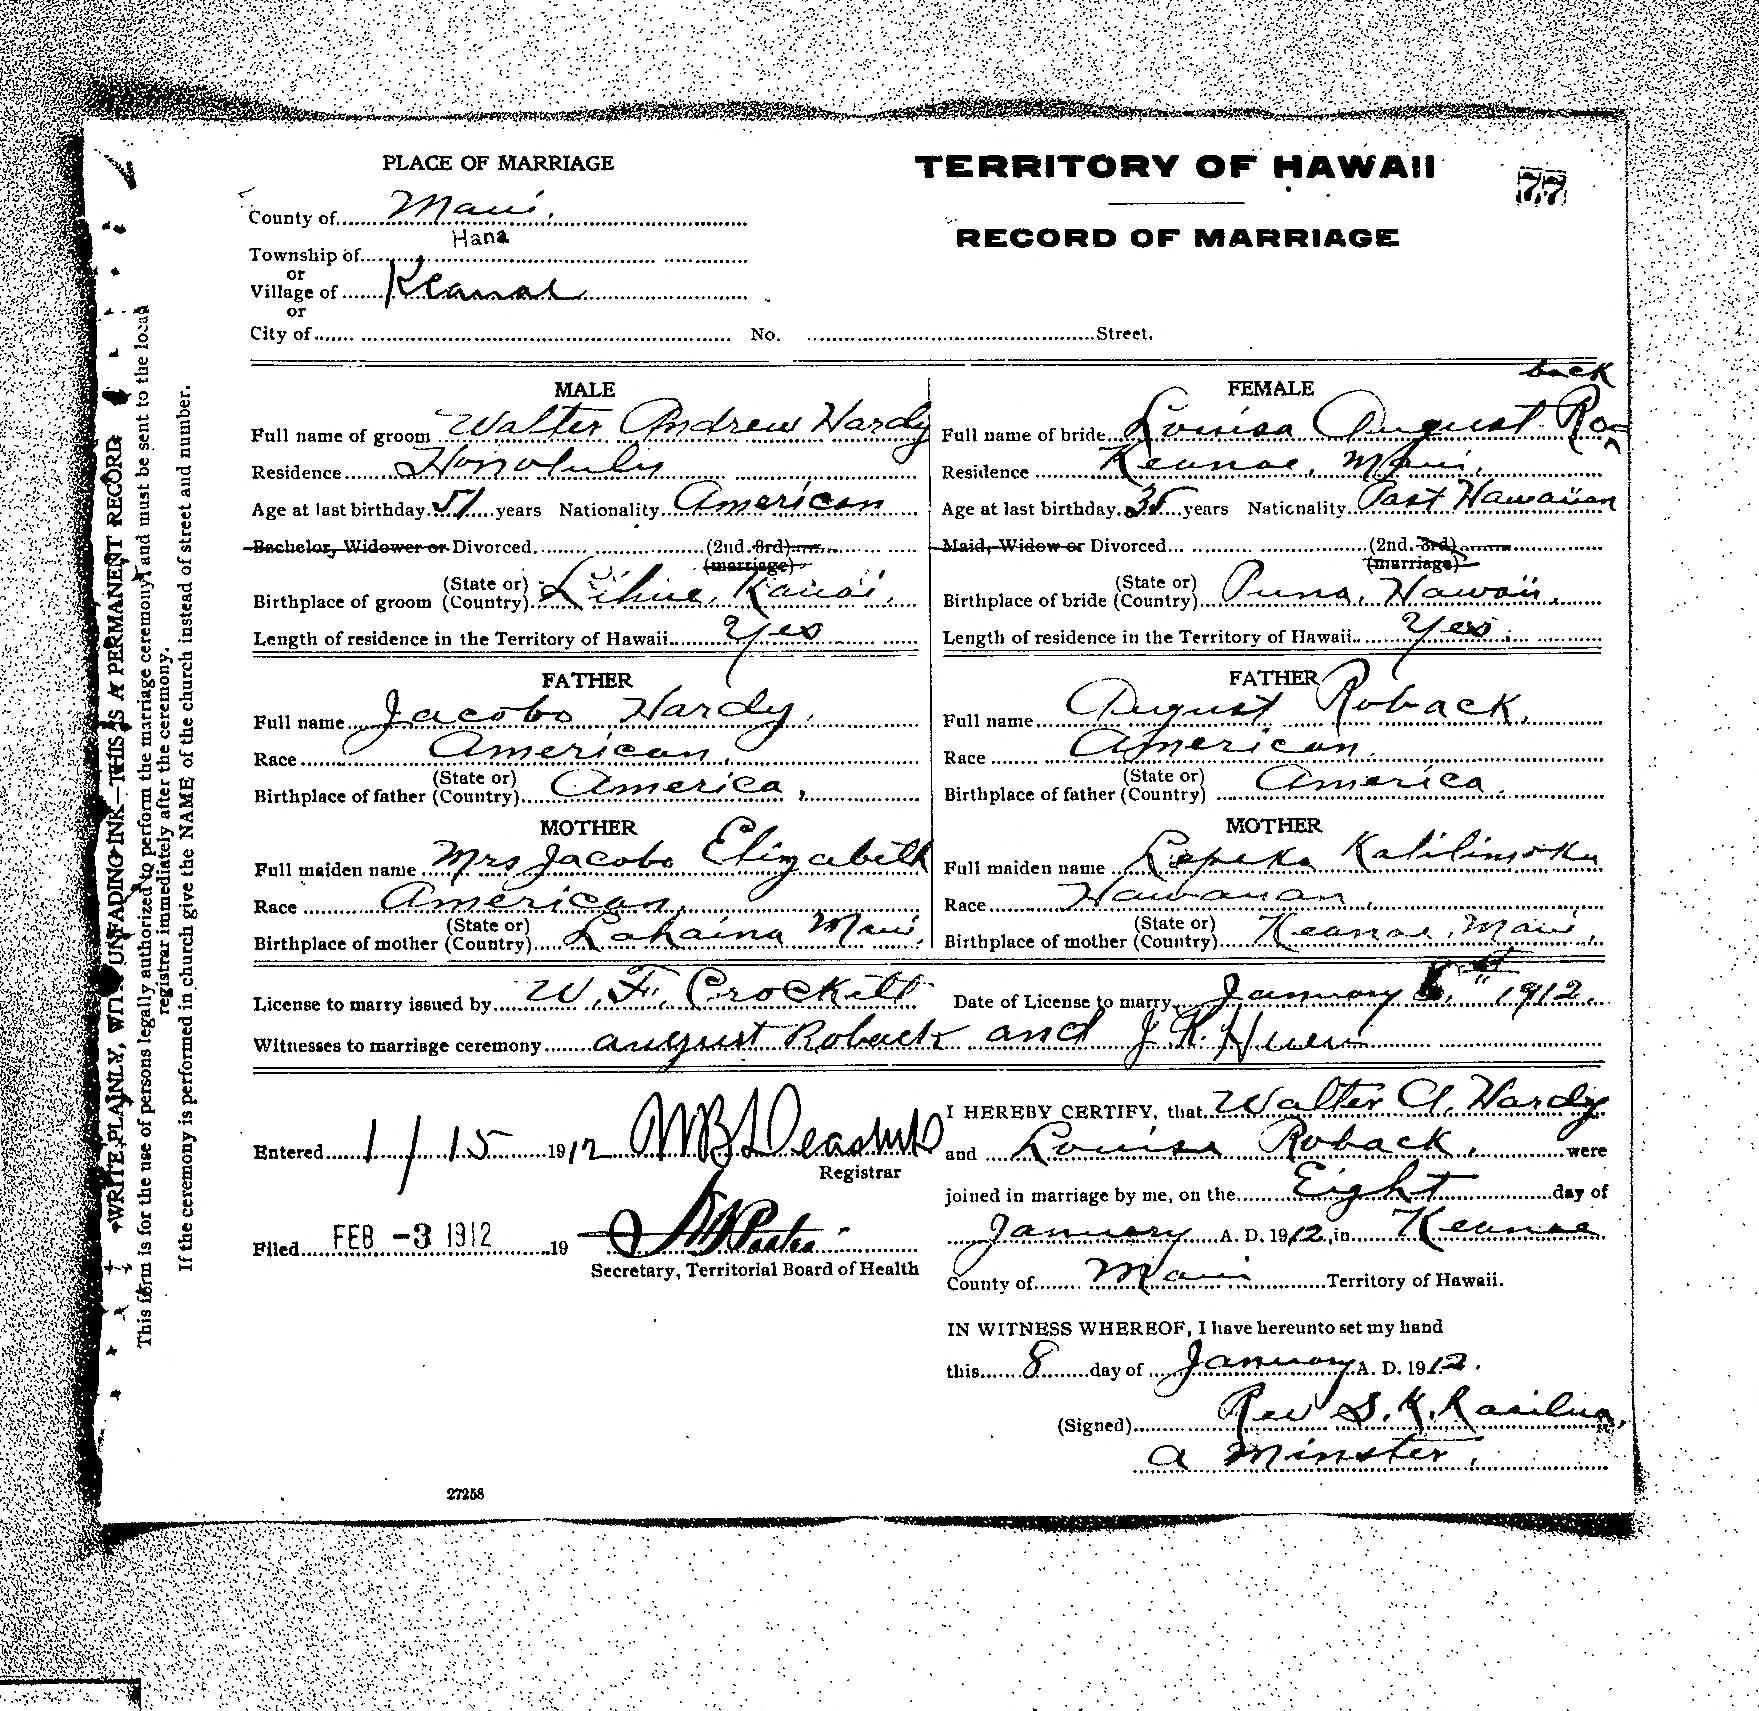 PLACE OF MARRIAGE
County of Maui.
Hana
Township of
or
Village of Keanae
or
City of No. Street.
TERRITORY OF HAWAII
RECORD OF MARRIAGE
77
WRITE PLAINLY, WITH UNFADING INK—THIS IS A PERMANENT RECORD
This form is for the use of persons legally authorized to perform the marriage ceremony and must be sent to the local
registrar immediately after the ceremony.
If the ceremony is performed in church give the NAME of the church instead of street and number.
MALE
Full name of groom Walter Andrew Hardy
Residence Honolulu
Age at last birthday 51 years Nationality American
Bachelor, Widower or Divorced (2nd 3rd)
(marriage)
(State or)
Birthplace of groom (Country) Lihue, Kauai,
Length of residence in the Territory of Hawaii Yes
FATHER
Full name Jacobo Hardy.
Race American.
(State or)
Birthplace of father (Country) America,
MOTHER
Full maiden name Mrs Jacobo Elizabeth
Race American,
(State or)
Birthplace of mother (Country) Lahaina Maui,
back
FEMALE
Full name of bride Louisa August Ro
Residence Keanae, Maui,
Age at last birthday 35 years Nationality Part Hawaiian
Maid, Widow or Divorced (2nd 3rd)
(marriage)
(State or)
Birthplace of bride (Country) Puna, Hawaii,
Length of residence in the Territory of Hawaii Yes.
FATHER
Full name August Roback,
Race American.
(State or)
Birthplace of father (Country) America.
MOTHER
Full maiden name Lepeka
Race Hawaiian,
(State or)
Birthplace of mother (Country) Keanae, Maui,
License to marry issued by W. F. Crockett Date of License to marry January 1912.
Witnesses to marriage ceremony august Roback and J. K.
Entered 1/15 1912
Registrar
Filed FEB -3 1912 19
Secretary, Territorial Board of Health
I HEREBY CERTIFY, that Walter A. Hardy
and Louisa Roback, were
joined in marriage by me, on the Eight day of
January A. D. 1912, in Keanae
County of Maui Territory of Hawaii.
IN WITNESS WHEREOF, I have hereunto set my hand
this 8 day of January A. D. 1912.
(Signed) Rev S. K. Kaailua,
a Minster,
27258